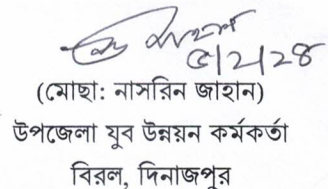 ৫/২/২৪
(মোছা: নাসরিন জাহান)
উপজেলা যুব উন্নয়ন কর্মকর্তা
বিরল, দিনাজপুর